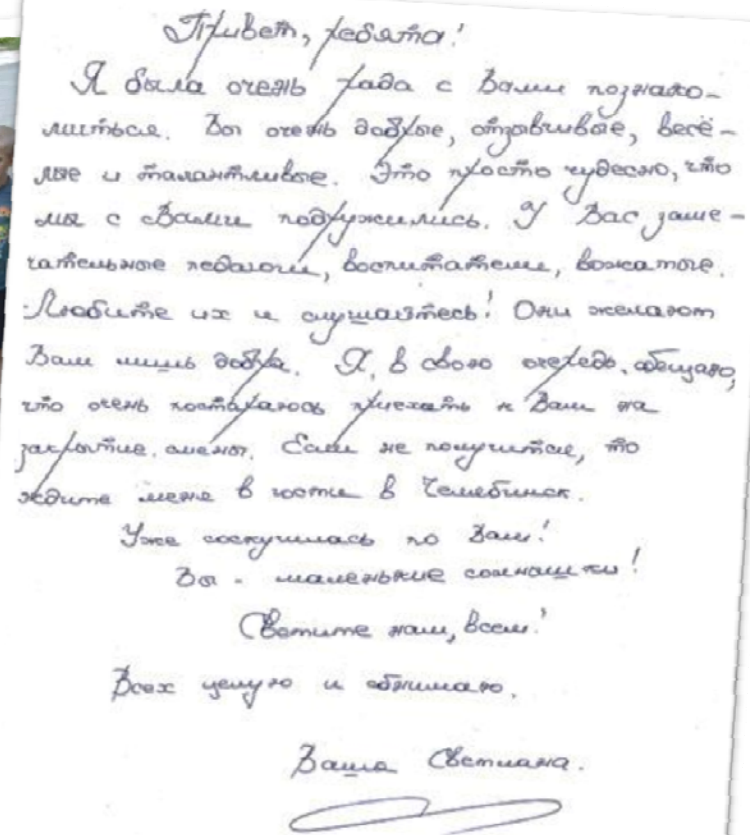 Привет, ребята!
Я была очень рада с Вами познако-
миться. Вы очень добрые, отзывчивые, весё-
лые и талантливые. Это просто чудесно, что
мы с Вами подружились. У Вас заме-
чательные педагоги, воспитатели, вожатые.
Любите их и слушайтесь! Они желают
Вам лишь добра. Я, в свою очередь, обещаю,
что очень постараюсь приехать к Вам на
закрытие смены. Если не получится, то
ждите меня в гости в Челябинск.
Уже соскучилась по Вам!
Вы - маленькие солнышки!
Светите нам, всем!
Всех целую и обнимаю.
Ваша Светлана.